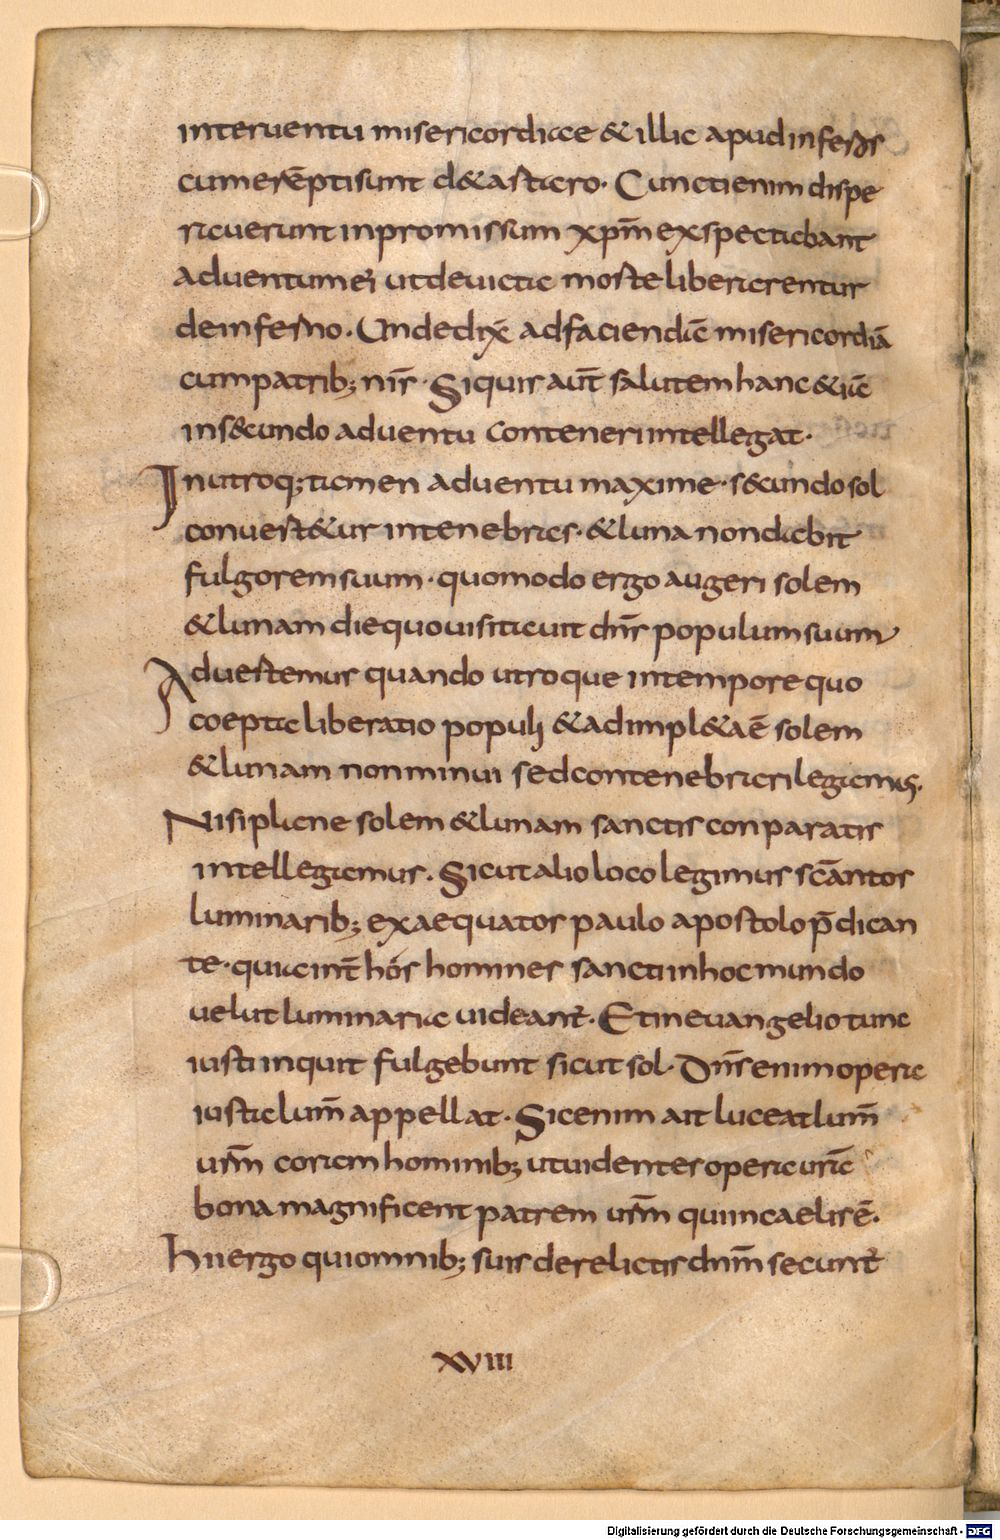 interuentu misericordiae & illic apud inferos
cum erēpti sunt d& astaro. Cuncti enim dispe
rauerunt in promissum xpm̄ exspectabant
aduentum ei ut deuicta morte liberarentur
de inferno. Unde dix̄ ad faciendā misericordiā
cum patrib; nīs. Si quis aut̄ salutem hanc &iā
in s&cundo aduentu conteneri intellegat.
In utroq; tamen aduentu maxime. s&cundo sol
conuert&ur in tenebras. & luna non dabit
fulgorem suum. quomodo ergo augeri solem
& lunam die quo uisitauit dn̄s populum suum
Aduertemus quando utroque in tempore quo
coepta liberatio populi & adimpl&a ē solem
& lunam non minui sed contenebrari legamus.
Nisi plane solem & lunam sanctis conparatis
intellegamus. Sicut alio loco legimus scāntos
luminarib; exaequatos paulo apostolo p̄dican
te. qui ait hós homines sancti in hoc mundo
uelut luminaria uideant̄. Et in euangelio tunc
iusti inquit fulgebunt sicut sol. Dn̄s enim opera
iusta lum̄ appellat. Sic enim ait luceat lum̄
urm̄ coram hominib; ut uidentes opera urā
bona magnificent patrem urm̄ qui in caelis ē.
Hii ergo qui omnib; suis derelictis dnm̄ secunt̄
XVIII
Digitalisierung gefördert durch die Deutsche Forschungsgemeinschaft - DFG